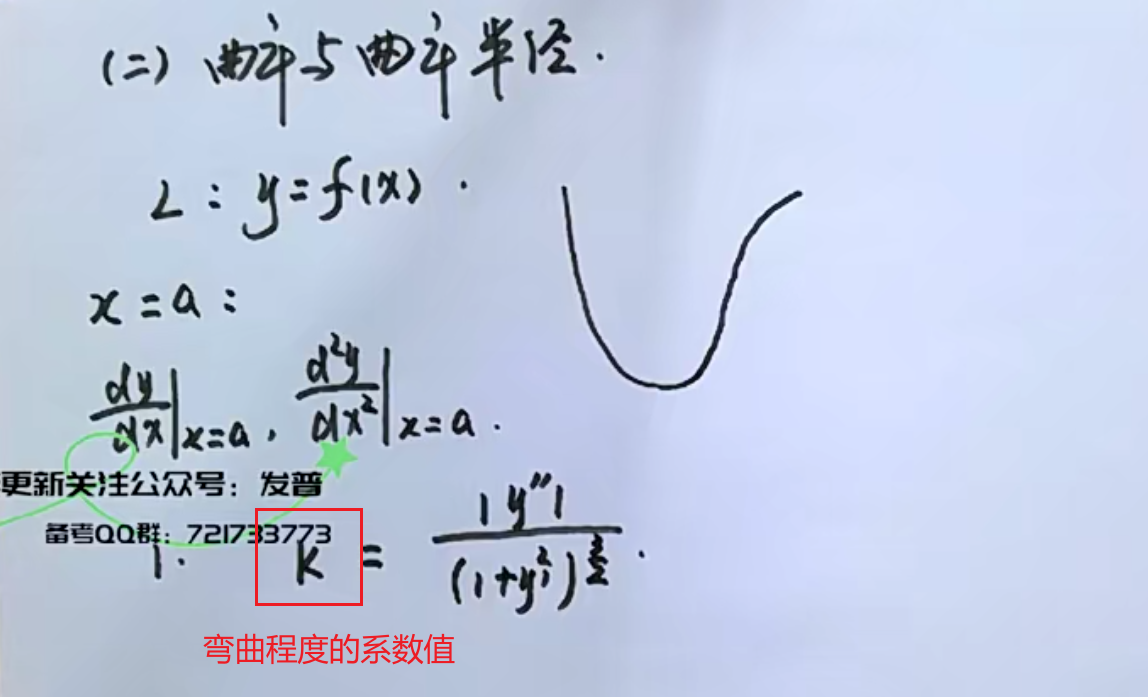 (二) 曲率与曲率半径.
L : y = f(x) .
x = a :
dy/dx|x=a , d²y/dx²|x=a .
更新关注公众号：发普
备考QQ群：721733773
1. K = |y″| / (1+y′²)^(3/2) .
弯曲程度的系数值